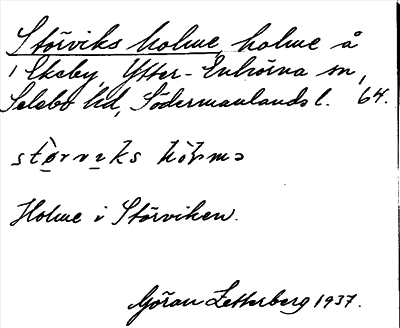 Störviks holme, holme å
/ Ekeby, Ytter-Enhörna sn,
Selebo hd, Södermanlands l. 64.
Holme i Störviken.
Göran Zetterberg 1937.